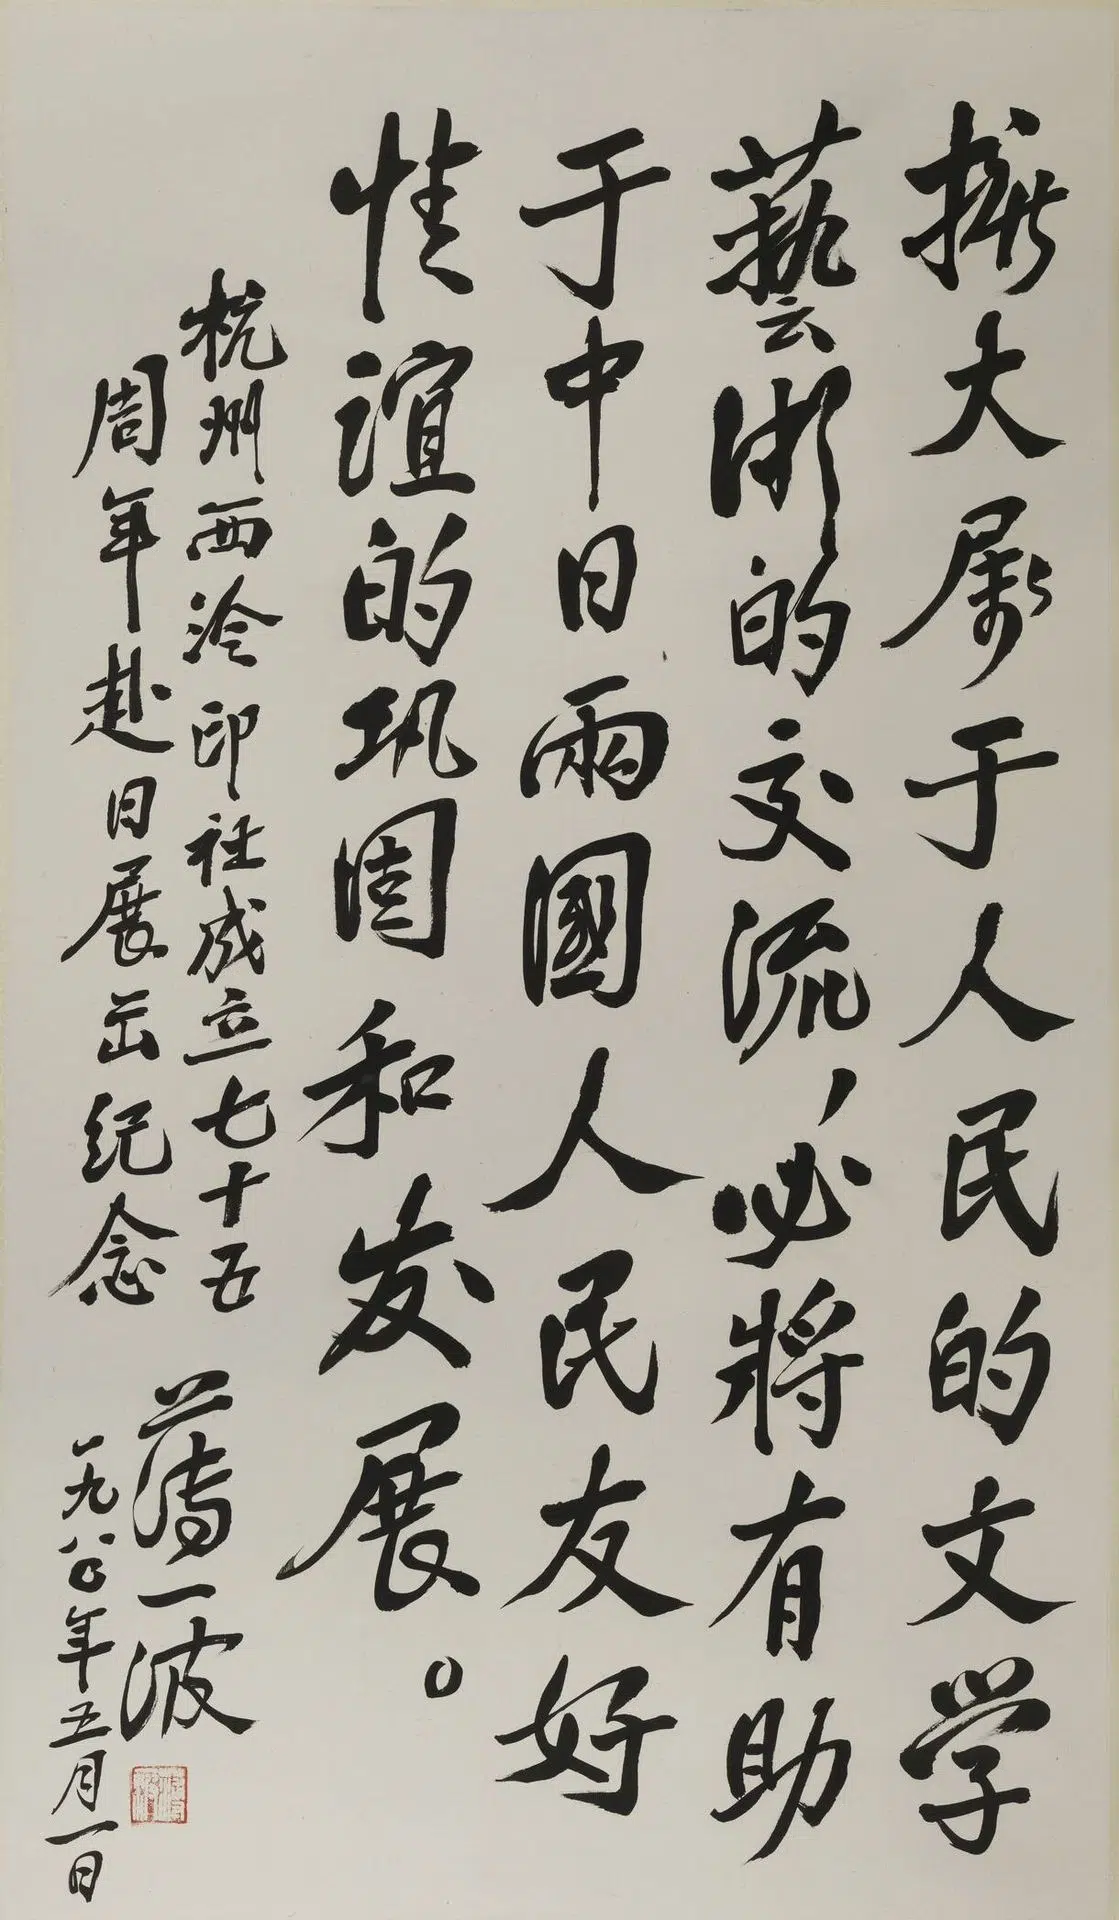 擴大属于人民的文学
藝術的交流，必將有助
于中日兩國人民友好
情誼的巩固和发展。
杭州西泠印社成立七十五
周年赴日展出纪念
薄一波
一九八〇年五月一日